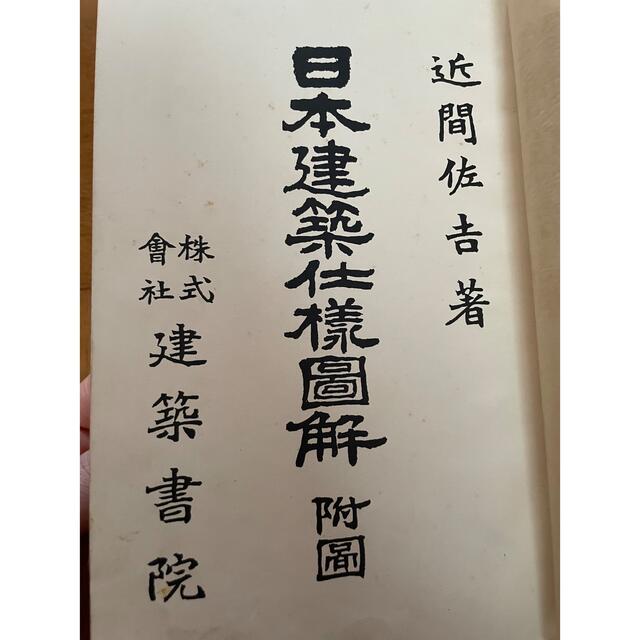 近間佐吉著
日本建築仕樣圖解 附圖
株式會社 建築書院